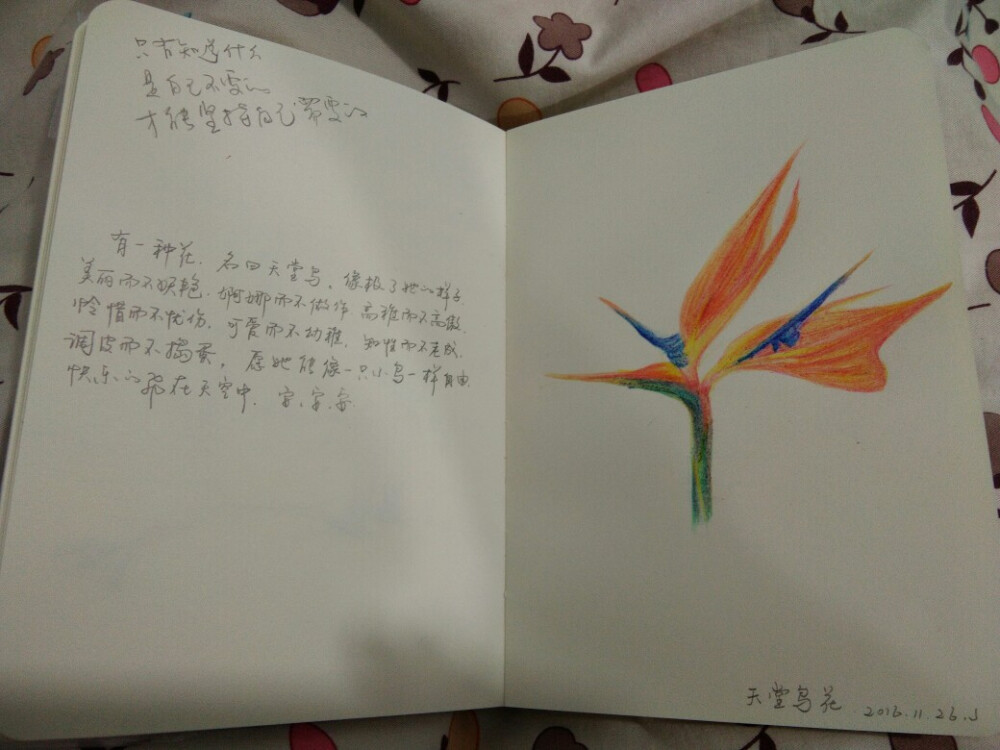 只有知道什么
是自己不要的
才能坚持自己需要的
有一种花. 名曰天堂鸟, 像极了她的样子.
美丽而不妖艳. 婀娜而不做作 高雅而不高傲.
怜惜而不忧伤. 可爱而不幼稚, 知性而不老成.
调皮而不捣蛋, 愿她能像一只小鸟一样自由
快乐的飞在天空中.
天堂鸟花 2016.11.26.J